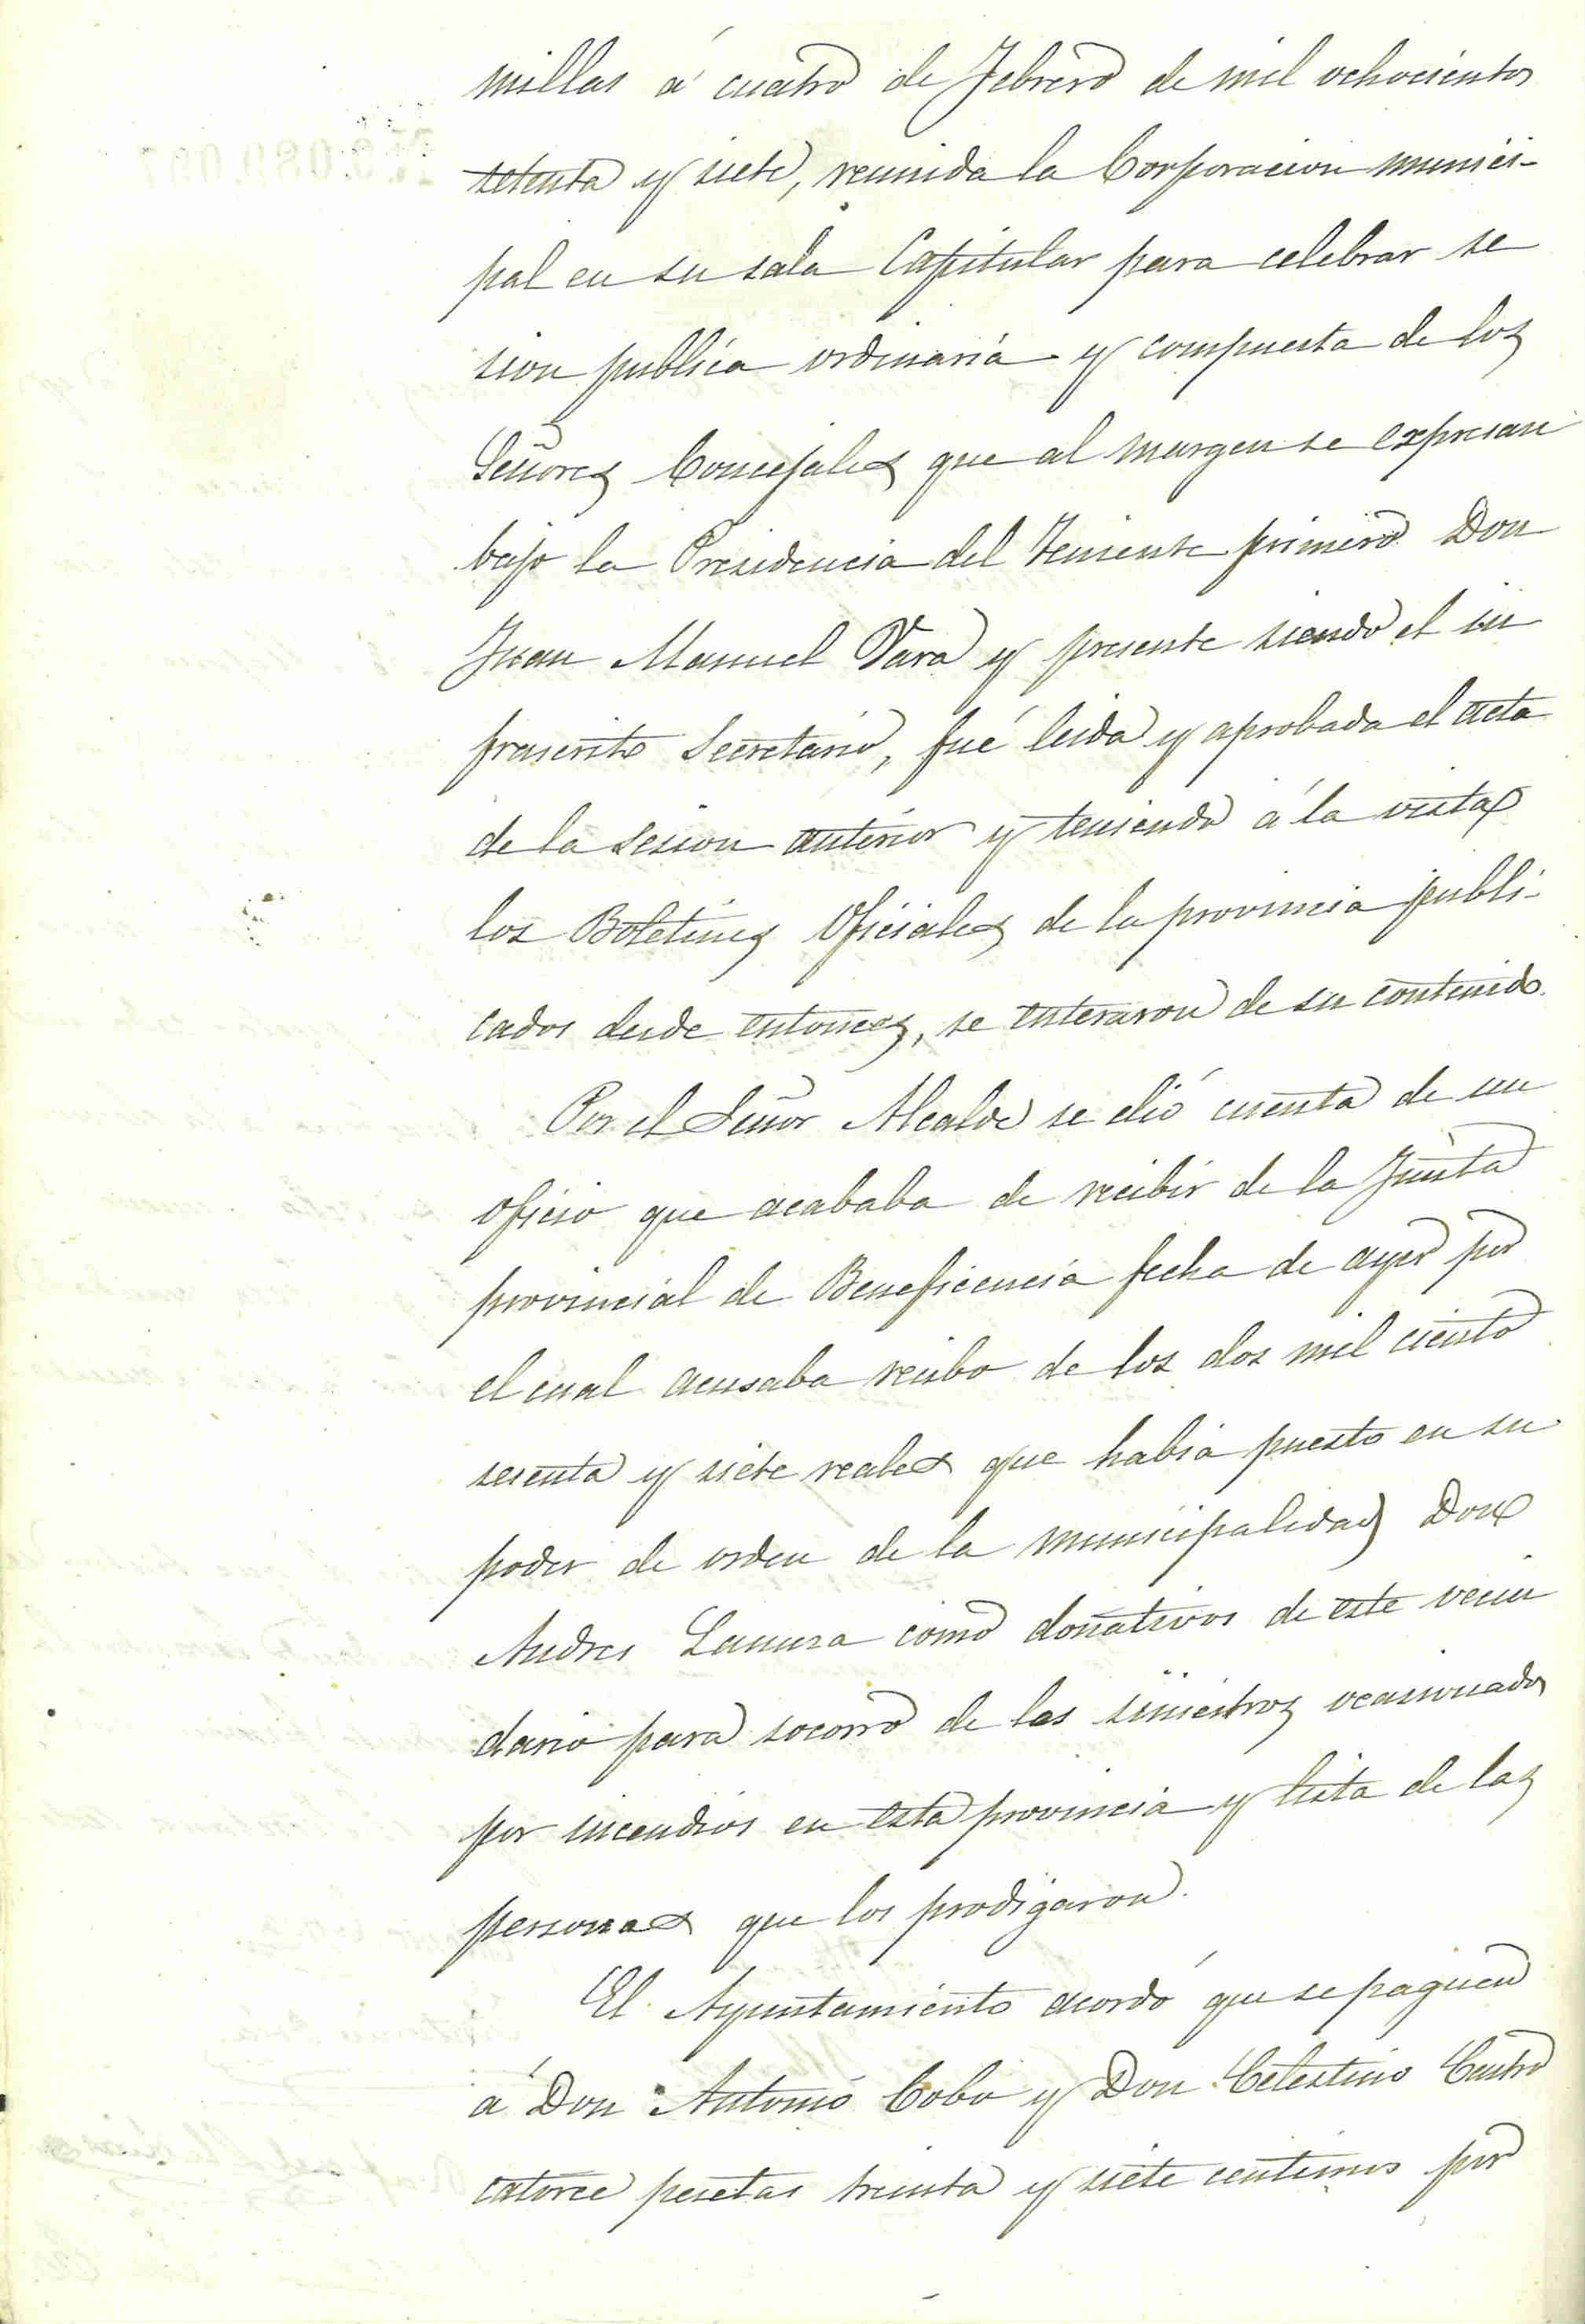 millas á cuatro de Febrero de mil ochocientos
setenta y siete, reunida la Corporacion munici-
pal en su sala Capitular para celebrar se
sion publica ordinaria y compuesta de los
Señores Concejales que al margen se expresan
bajo la Presidencia del Teniente primero Don
Juan Manuel Vara y presente siendo el in
frascrito Secretario, fué leida y aprobada el acta
de la sesion anterior y teniendo á la vista
los Boletines Oficiales de la provincia publi-
cados desde entonces, se enteraron de su contenido.
Por el Señor Alcalde se dió cuenta de un
oficio que acababa de recibir de la Junta
provincial de Beneficencia fecha de ayer por
el cual acusaba recibo de los dos mil ciento
sesenta y siete reales que habia puesto en su
poder de orden de la municipalidad Don
Andres como donativos de este vecin
dario para socorro de los siniestros ocasionados
por incendios en esta provincia y lista de las
personas que los prodigaron.
El Ayuntamiento acordó que se paguen
á Don Antonio Cobo y Don Celestino Castro
catorce pesetas treinta y siete centimos por